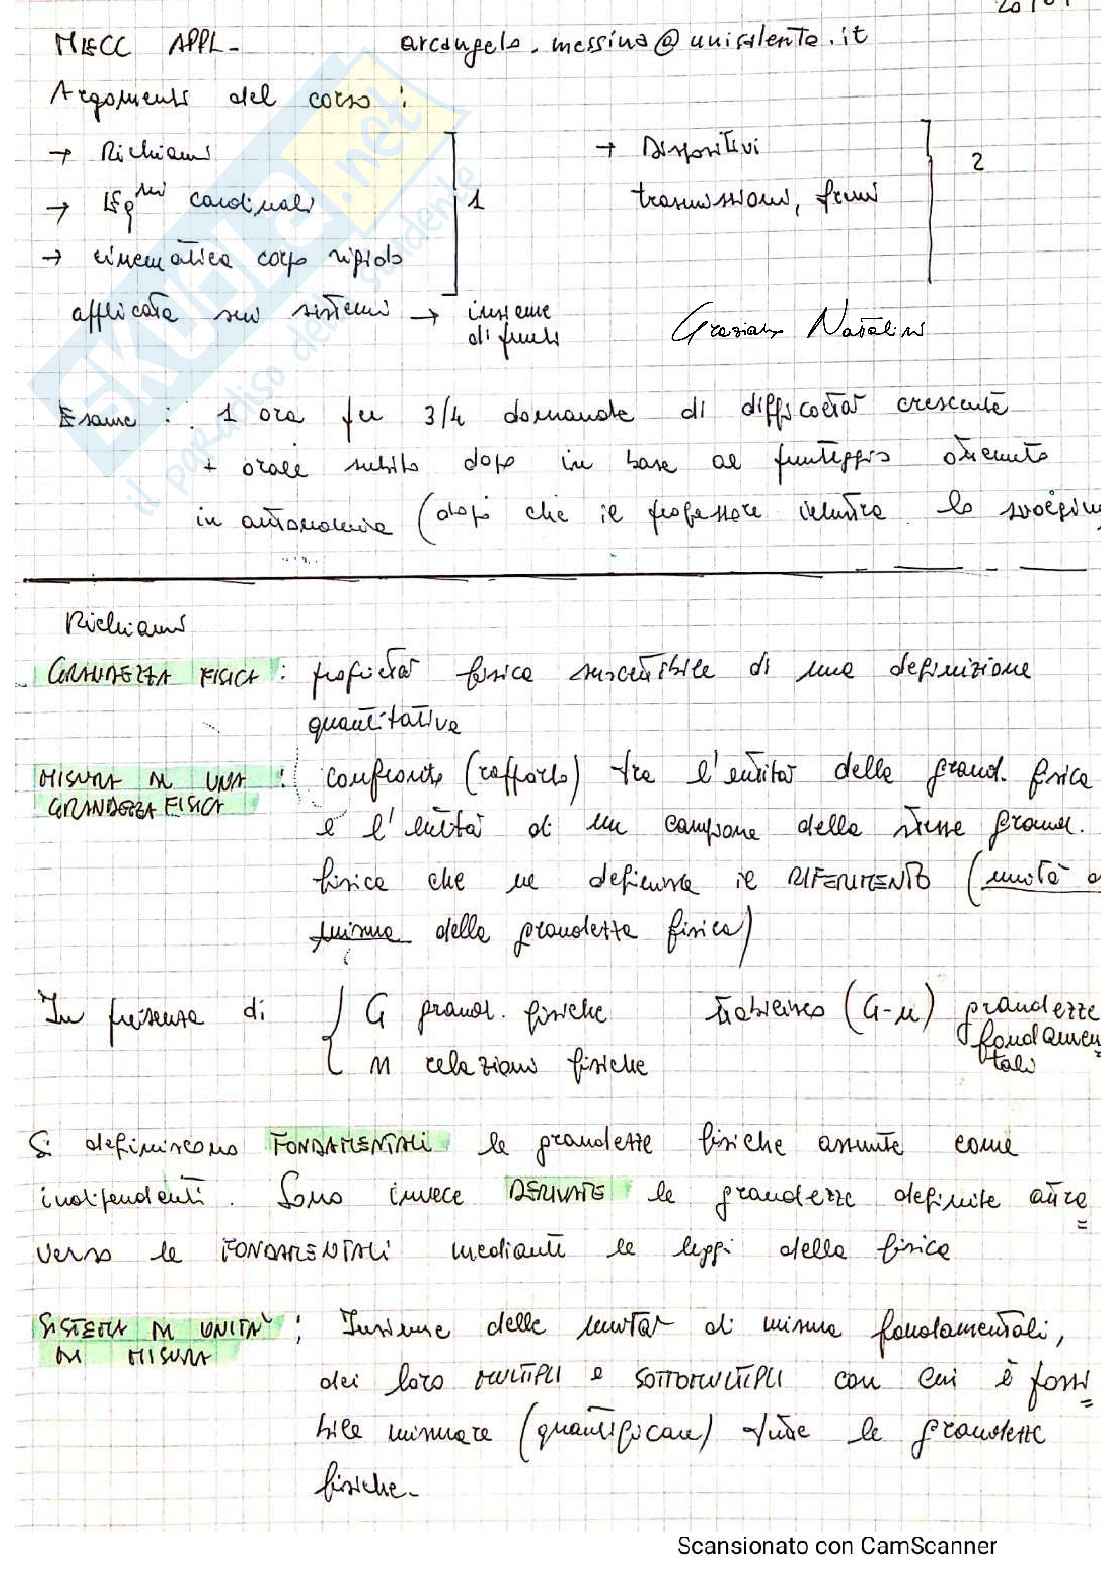 20/09
MECC APPL- arcangelo.messina@unisalento.it
Argomenti del corso :
→ Richiami
→ Eq.ni cardinali
→ cinematica corpo rigido
1
→ Dispositivi
trasmissioni, freni
2
applicata sui sistemi → insieme
di punti
Graziano Natalini
Esame : 1 ora per 3/4 domande di difficoltà crescente
+ orale subito dopo in base al punteggio ottenuto
in autonomia (dopo che il professore lo
Richiami
GRANDEZZA FISICA : proprietà fisica suscettibile di una definizione
quantitativa
MISURA DI UNA
GRANDEZZA FISICA : confronto (rapporto) tra l'entità della grand. fisica
e l'entità di un campione della stessa grand.
fisica che ne definisca il RIFERIMENTO (unità d
misura della grandezza fisica)
In presenza di { G grand. fisiche
n relazioni fisiche
stabilisco (G-n) grandezze
fondamen
tali
Si definiscono FONDAMENTALI le grandezze fisiche assunte come
indipendenti. Sono invece DERIVATE le grandezze definite attra
verso le FONDAMENTALI mediante le leggi della fisica
SISTEMA DI UNITA'
DI MISURA : Insieme delle unità di misura fondamentali,
dei loro MULTIPLI e SOTTOMULTIPLI con cui è possi
bile misurare (quantificare) tutte le grandezze
fisiche.
SKUOLA.net
il paradiso dello studente
Scansionato con CamScanner